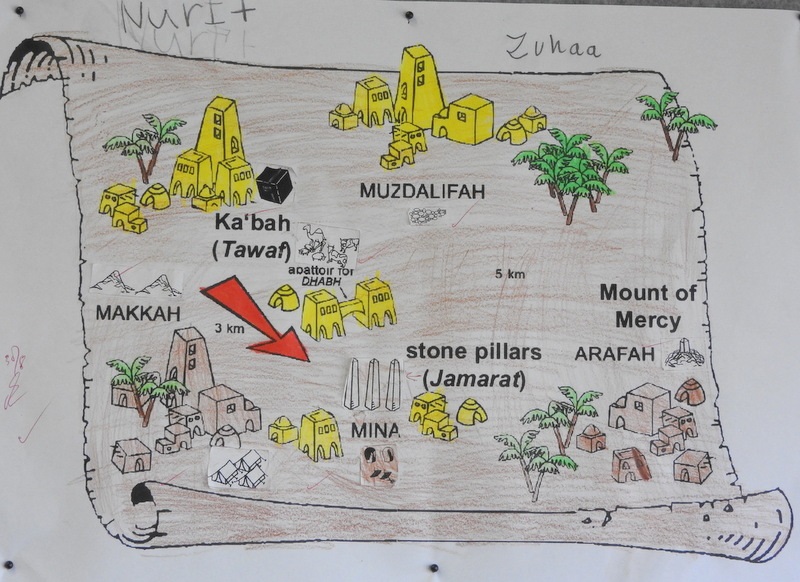 NurI+
Zuhaa
MUZDALIFAH
Ka'bah
(Tawaf)
abattoir for
DHABH
5 km
MAKKAH
3 km
Mount of
Mercy
ARAFAH
stone pillars
(Jamarat)
MINA